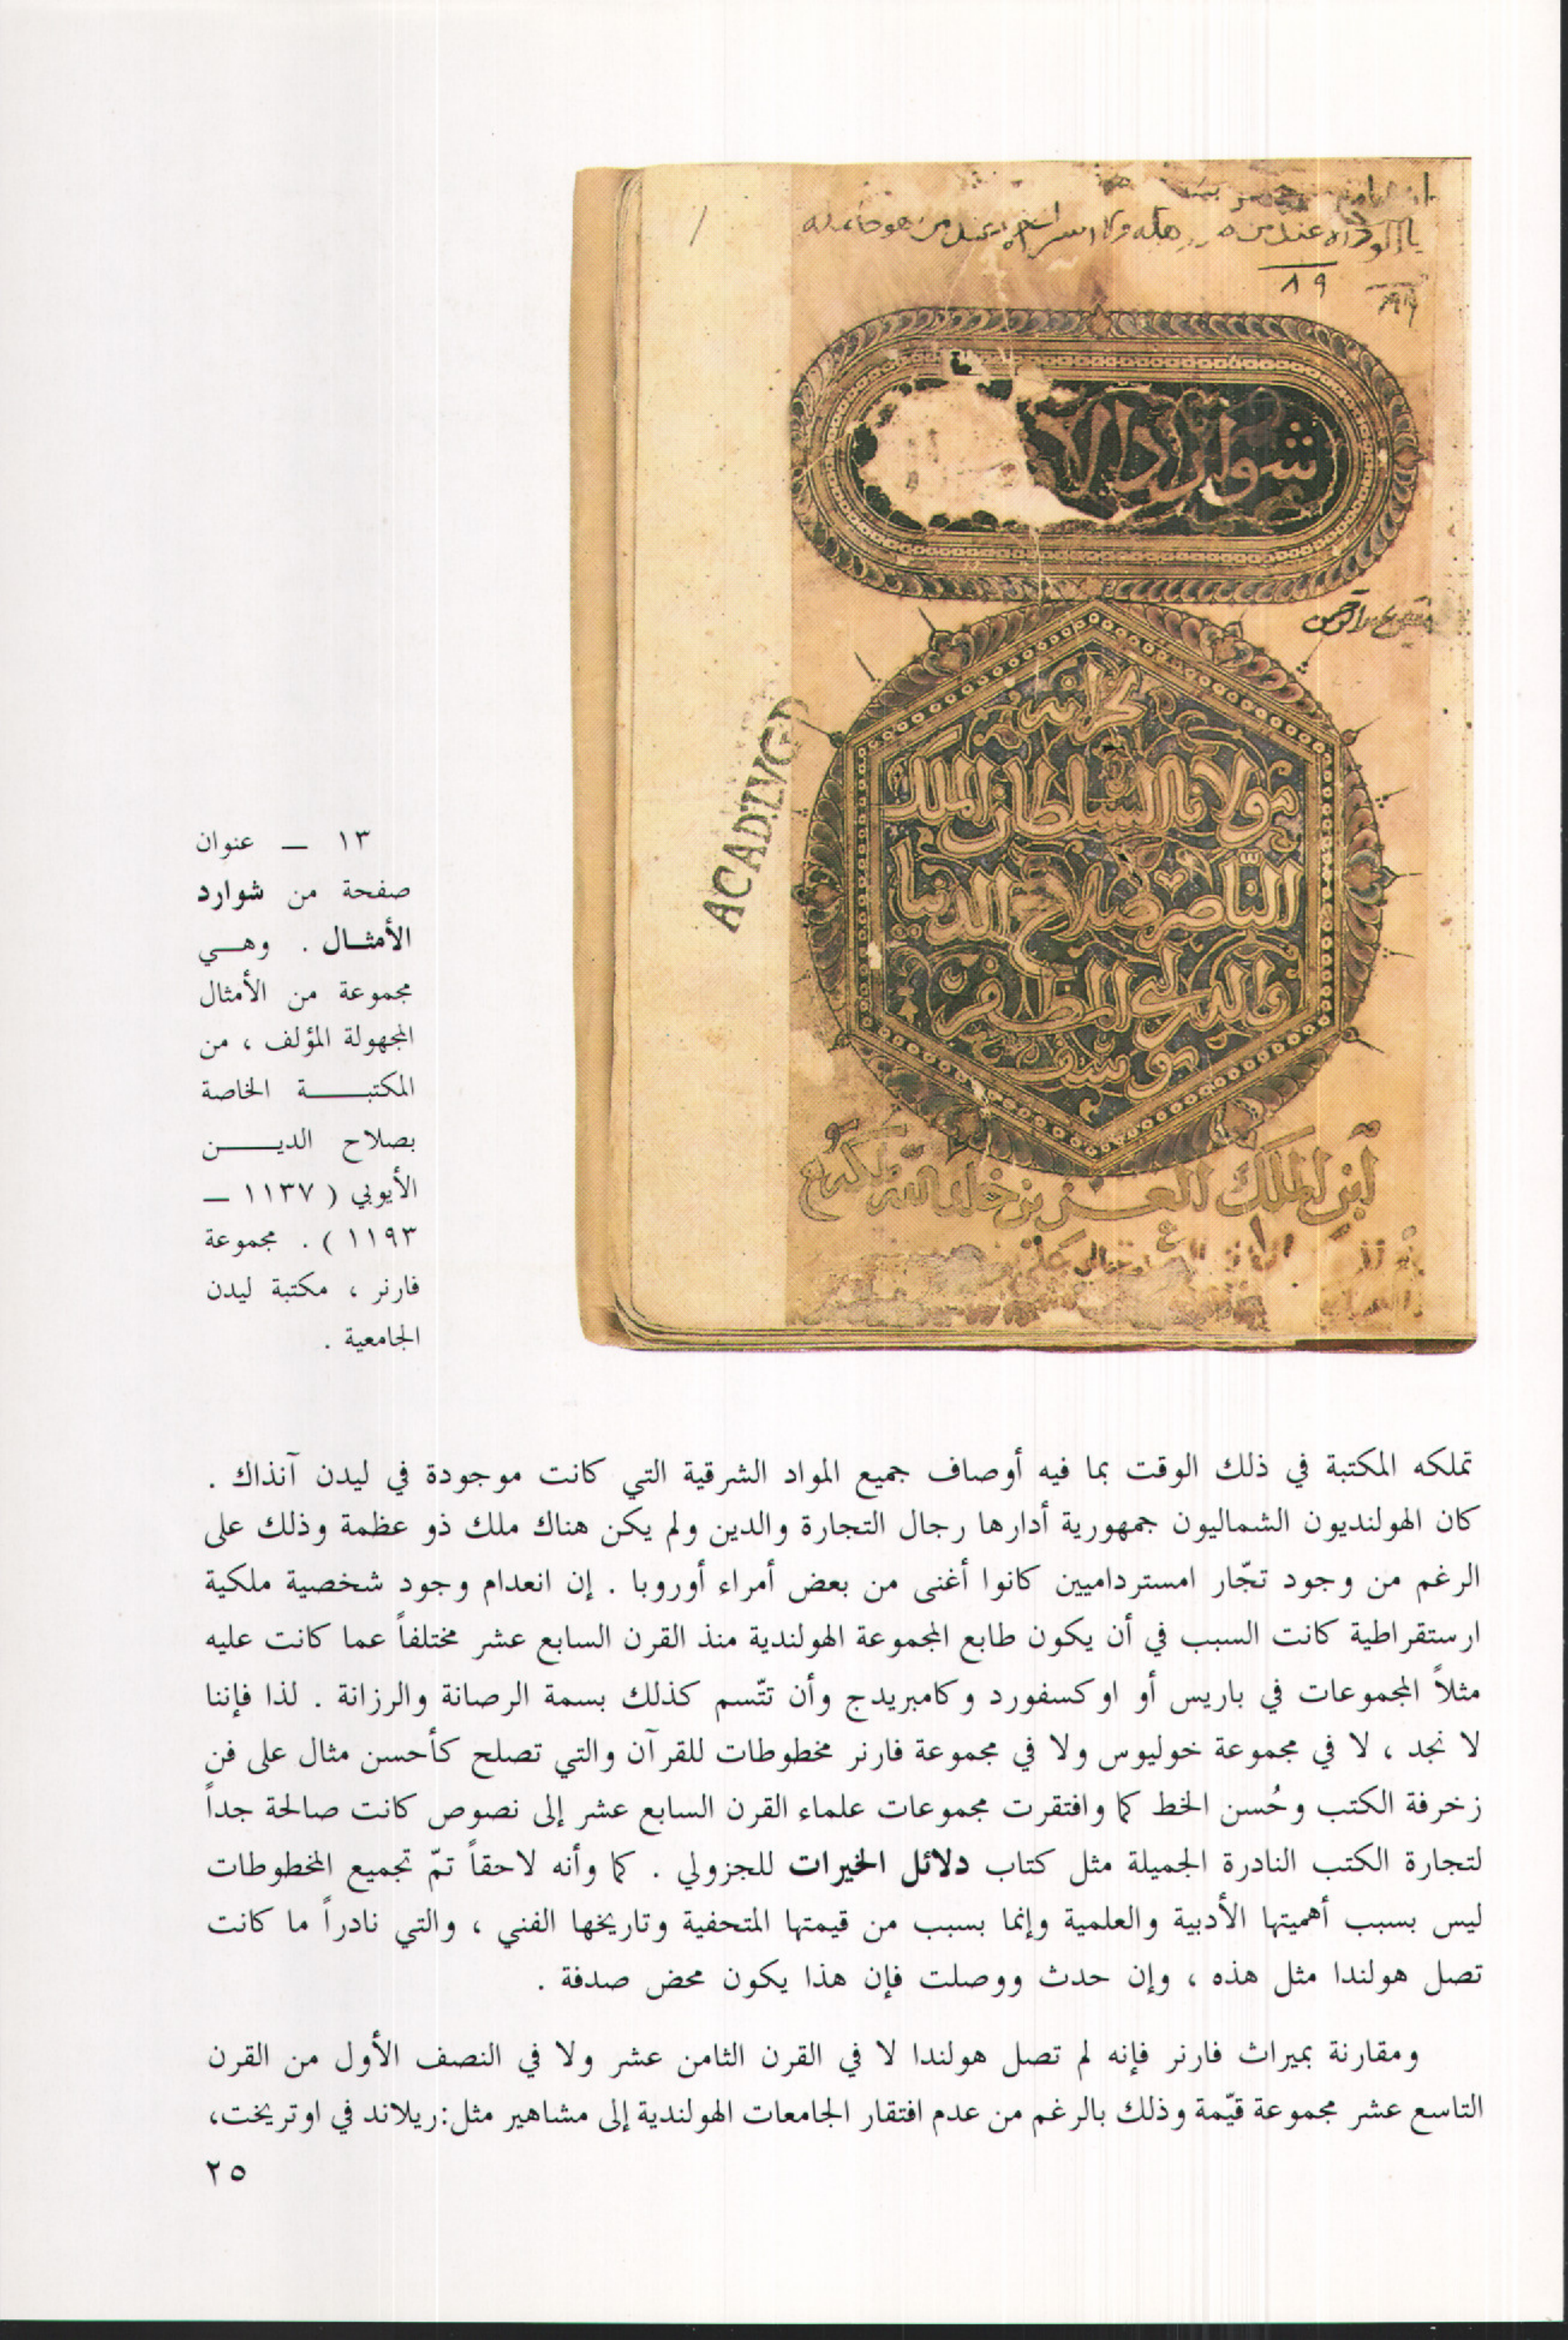 ٨٩
شوارد الا
لخزانة
مولانا السلطان الملك
الناصر صلاح الدنيا
والدين ابى المظفر
يوسف
ابن الملك العزيز خلد الله ملكه
ACAD LVGD
١٣ — عنوان
صفحة من شوارد
الأمثـال . وهـي
مجموعة من الأمثال
المجهولة المؤلف ، من
المكتبـــة الخاصة
بصلاح الديــن
الأيوبي ( ١١٣٧ —
١١٩٣ ) . مجموعة
فارنر ، مكتبة ليدن
الجامعية .
تملكه المكتبة في ذلك الوقت بما فيه أوصاف جميع المواد الشرقية التي كانت موجودة في ليدن آنذاك .
كان الهولنديون الشماليون جمهورية أدارها رجال التجارة والدين ولم يكن هناك ملك ذو عظمة وذلك على
الرغم من وجود تجّار امستردامیين كانوا أغنى من بعض أمراء أوروبا . إن انعدام وجود شخصية ملكية
ارستقراطية كانت السبب في أن يكون طابع المجموعة الهولندية منذ القرن السابع عشر مختلفاً عما كانت عليه
مثلاً المجموعات في باريس أو اوكسفورد وكامبريدج وأن تتّسم كذلك بسمة الرصانة والرزانة . لذا فإننا
لا نجد ، لا في مجموعة خوليوس ولا في مجموعة فارنر مخطوطات للقرآن والتي تصلح كأحسن مثال على فن
زخرفة الكتب وحُسن الخط كما وافتقرت مجموعات علماء القرن السابع عشر إلى نصوص كانت صالحة جداً
لتجارة الكتب النادرة الجميلة مثل كتاب دلائل الخيرات للجزولي . كما وأنه لاحقاً تمّ تجميع المخطوطات
ليس بسبب أهميتها الأدبية والعلمية وإنما بسبب من قيمتها المتحفية وتاريخها الفني ، والتي نادراً ما كانت
تصل هولندا مثل هذه ، وإن حدث ووصلت فإن هذا يكون محض صدفة .
ومقارنة بميراث فارنر فإنه لم تصل هولندا لا في القرن الثامن عشر ولا في النصف الأول من القرن
التاسع عشر مجموعة قيّمة وذلك بالرغم من عدم افتقار الجامعات الهولندية إلى مشاهير مثل:ريلاند في اوتريخت،
٢٥